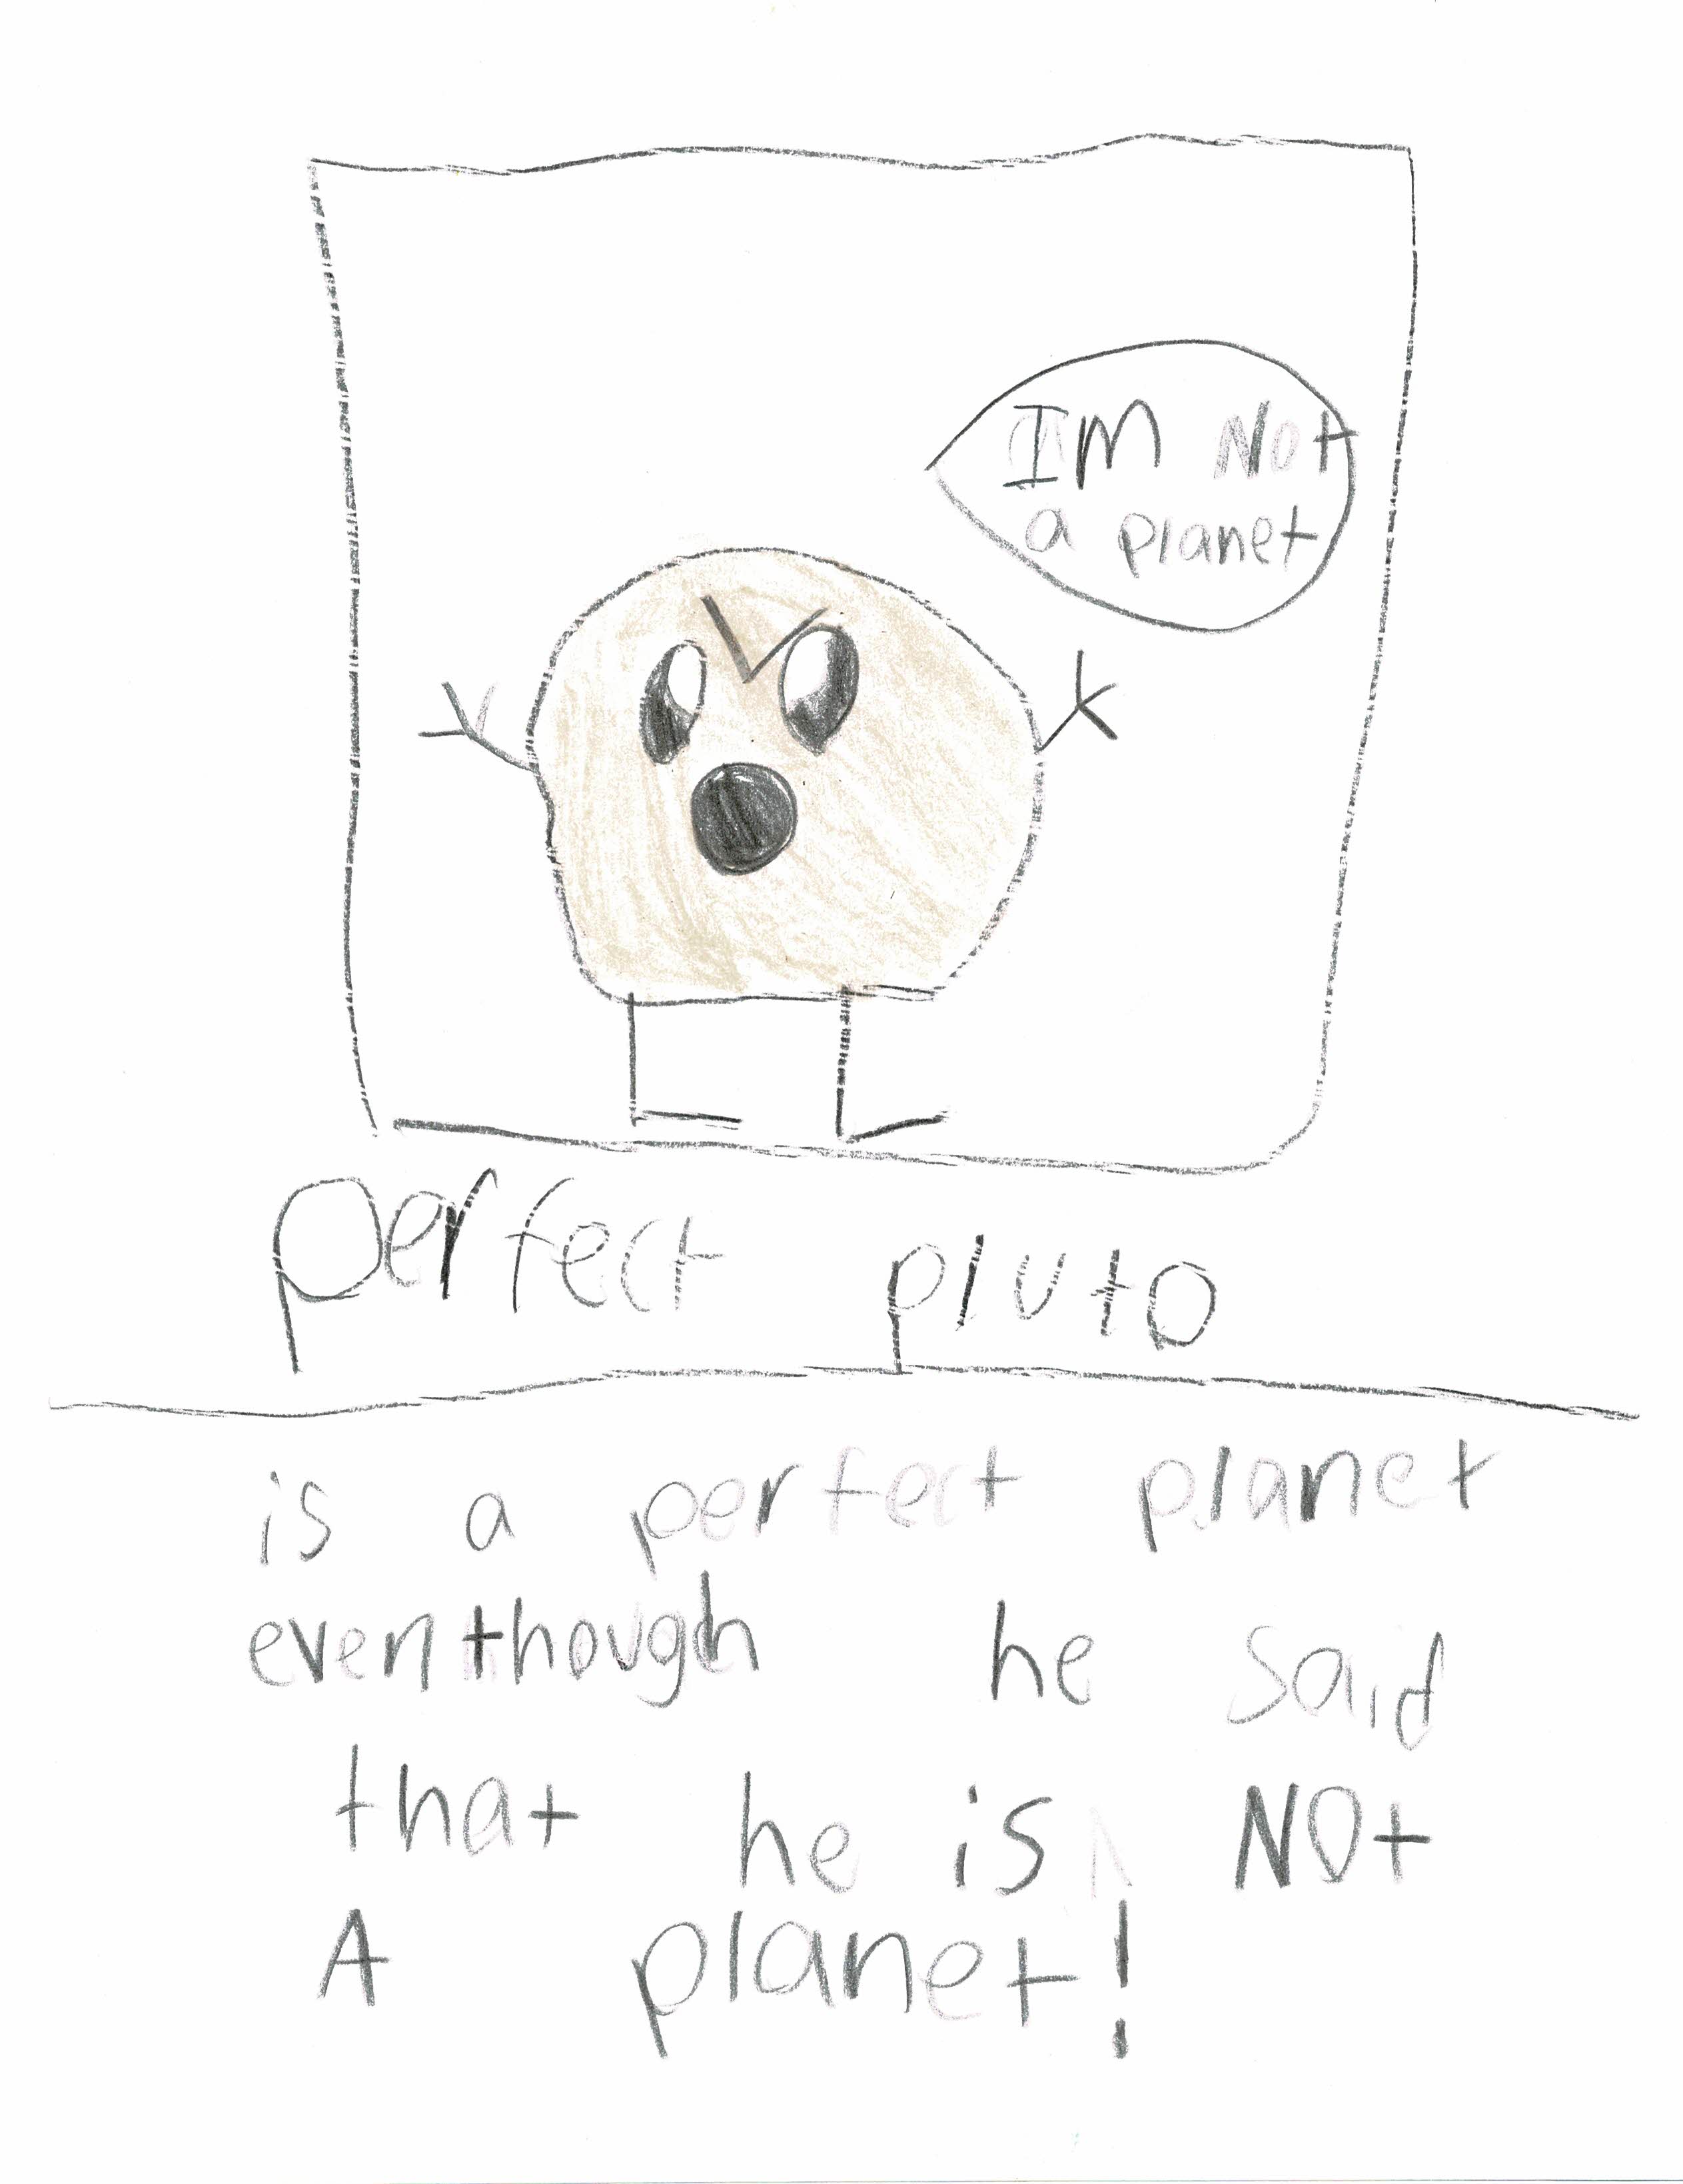 I'm Not
a planet
perfect pluto
is a perfect planet
eventhough he said
that he is NOt
A planet!